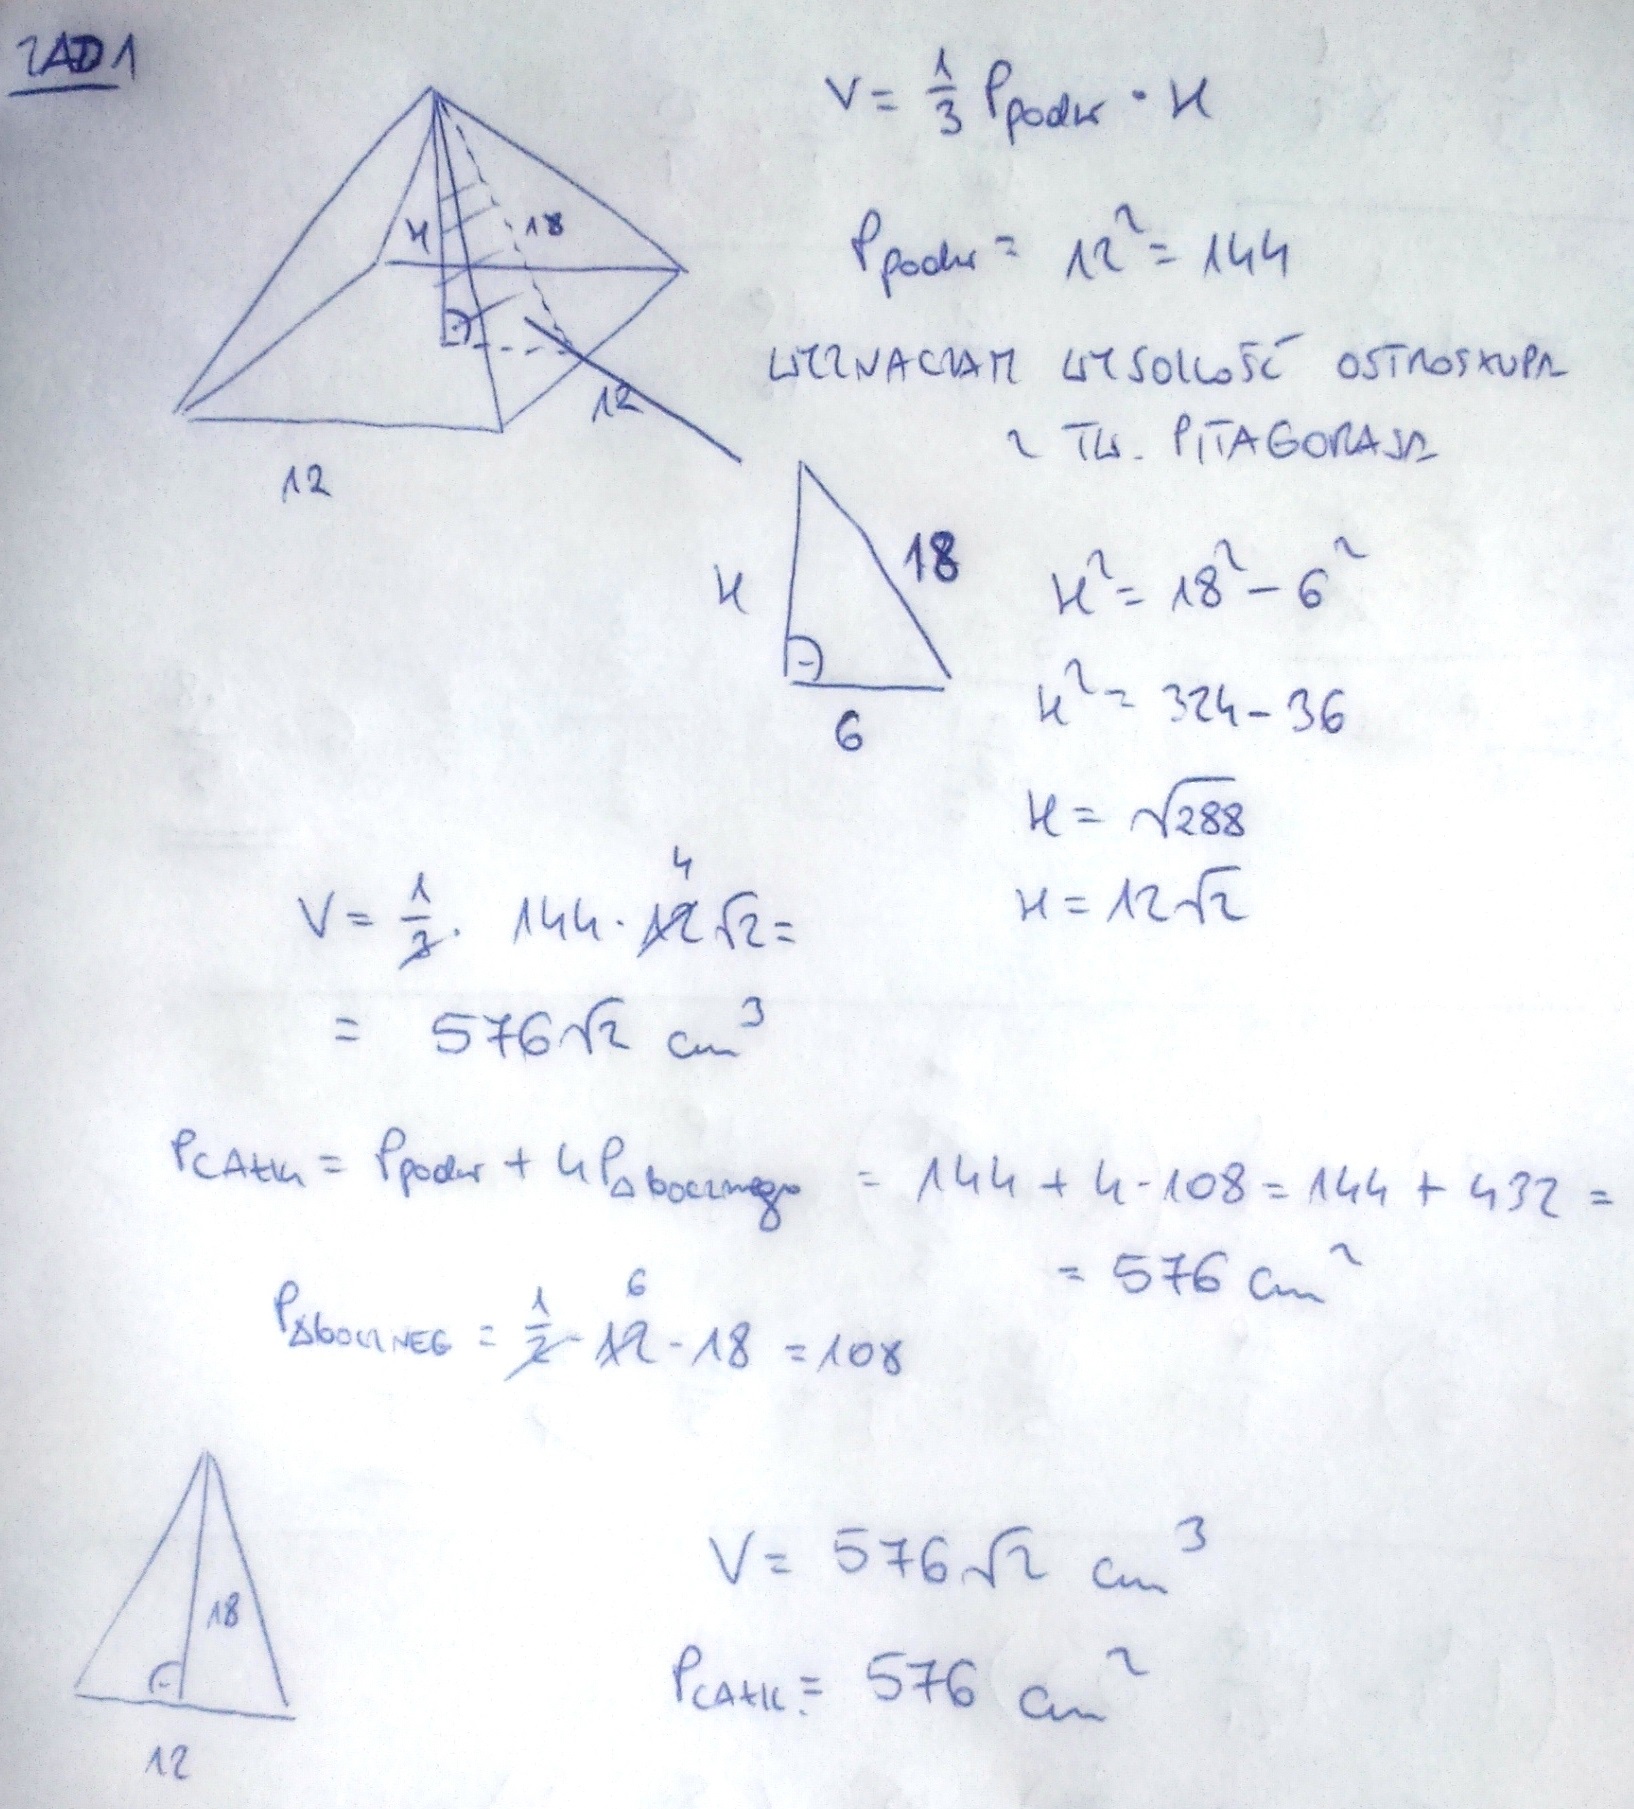 ZAD 1
V = 1/3 Ppodst · H
H
18
12
12
Ppodst = 12² = 144
WYZNACZAM WYSOKOŚĆ OSTROSŁUPA
Z TW. PITAGORASA
H
18
6
H² = 18² - 6²
H² = 324 - 36
H = √288
H = 12√2
4
V = 1/3 · 144 · 12√2 =
= 576√2 cm³
PCAŁK = Ppodst + 4PΔbocznego = 144 + 4 · 108 = 144 + 432 =
= 576 cm²
6
PΔBOCZNEG = 1/2 · 12 · 18 = 108
18
12
V = 576√2 cm³
PCAŁK. = 576 cm²